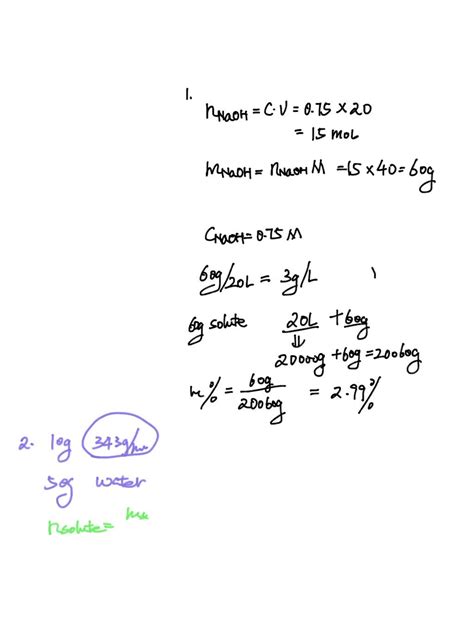 1.
nNaOH = C·V = 0.75 × 20
= 15 mol
mNaOH = nNaOH M = 15 × 40 = 60g
CNaOH = 0.75 M
60g/20L = 3g/L
60g solute 20L + 60g
⇓
20000g + 60g = 20060g
m% = 60g / 20060g = 2.99%
2. 10g 343g/m
50g water
nsolute = m